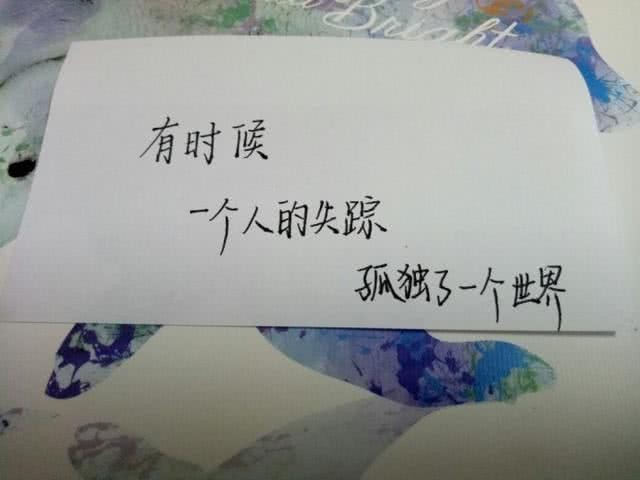 Bright
有时候
一个人的失踪
孤独了一个世界